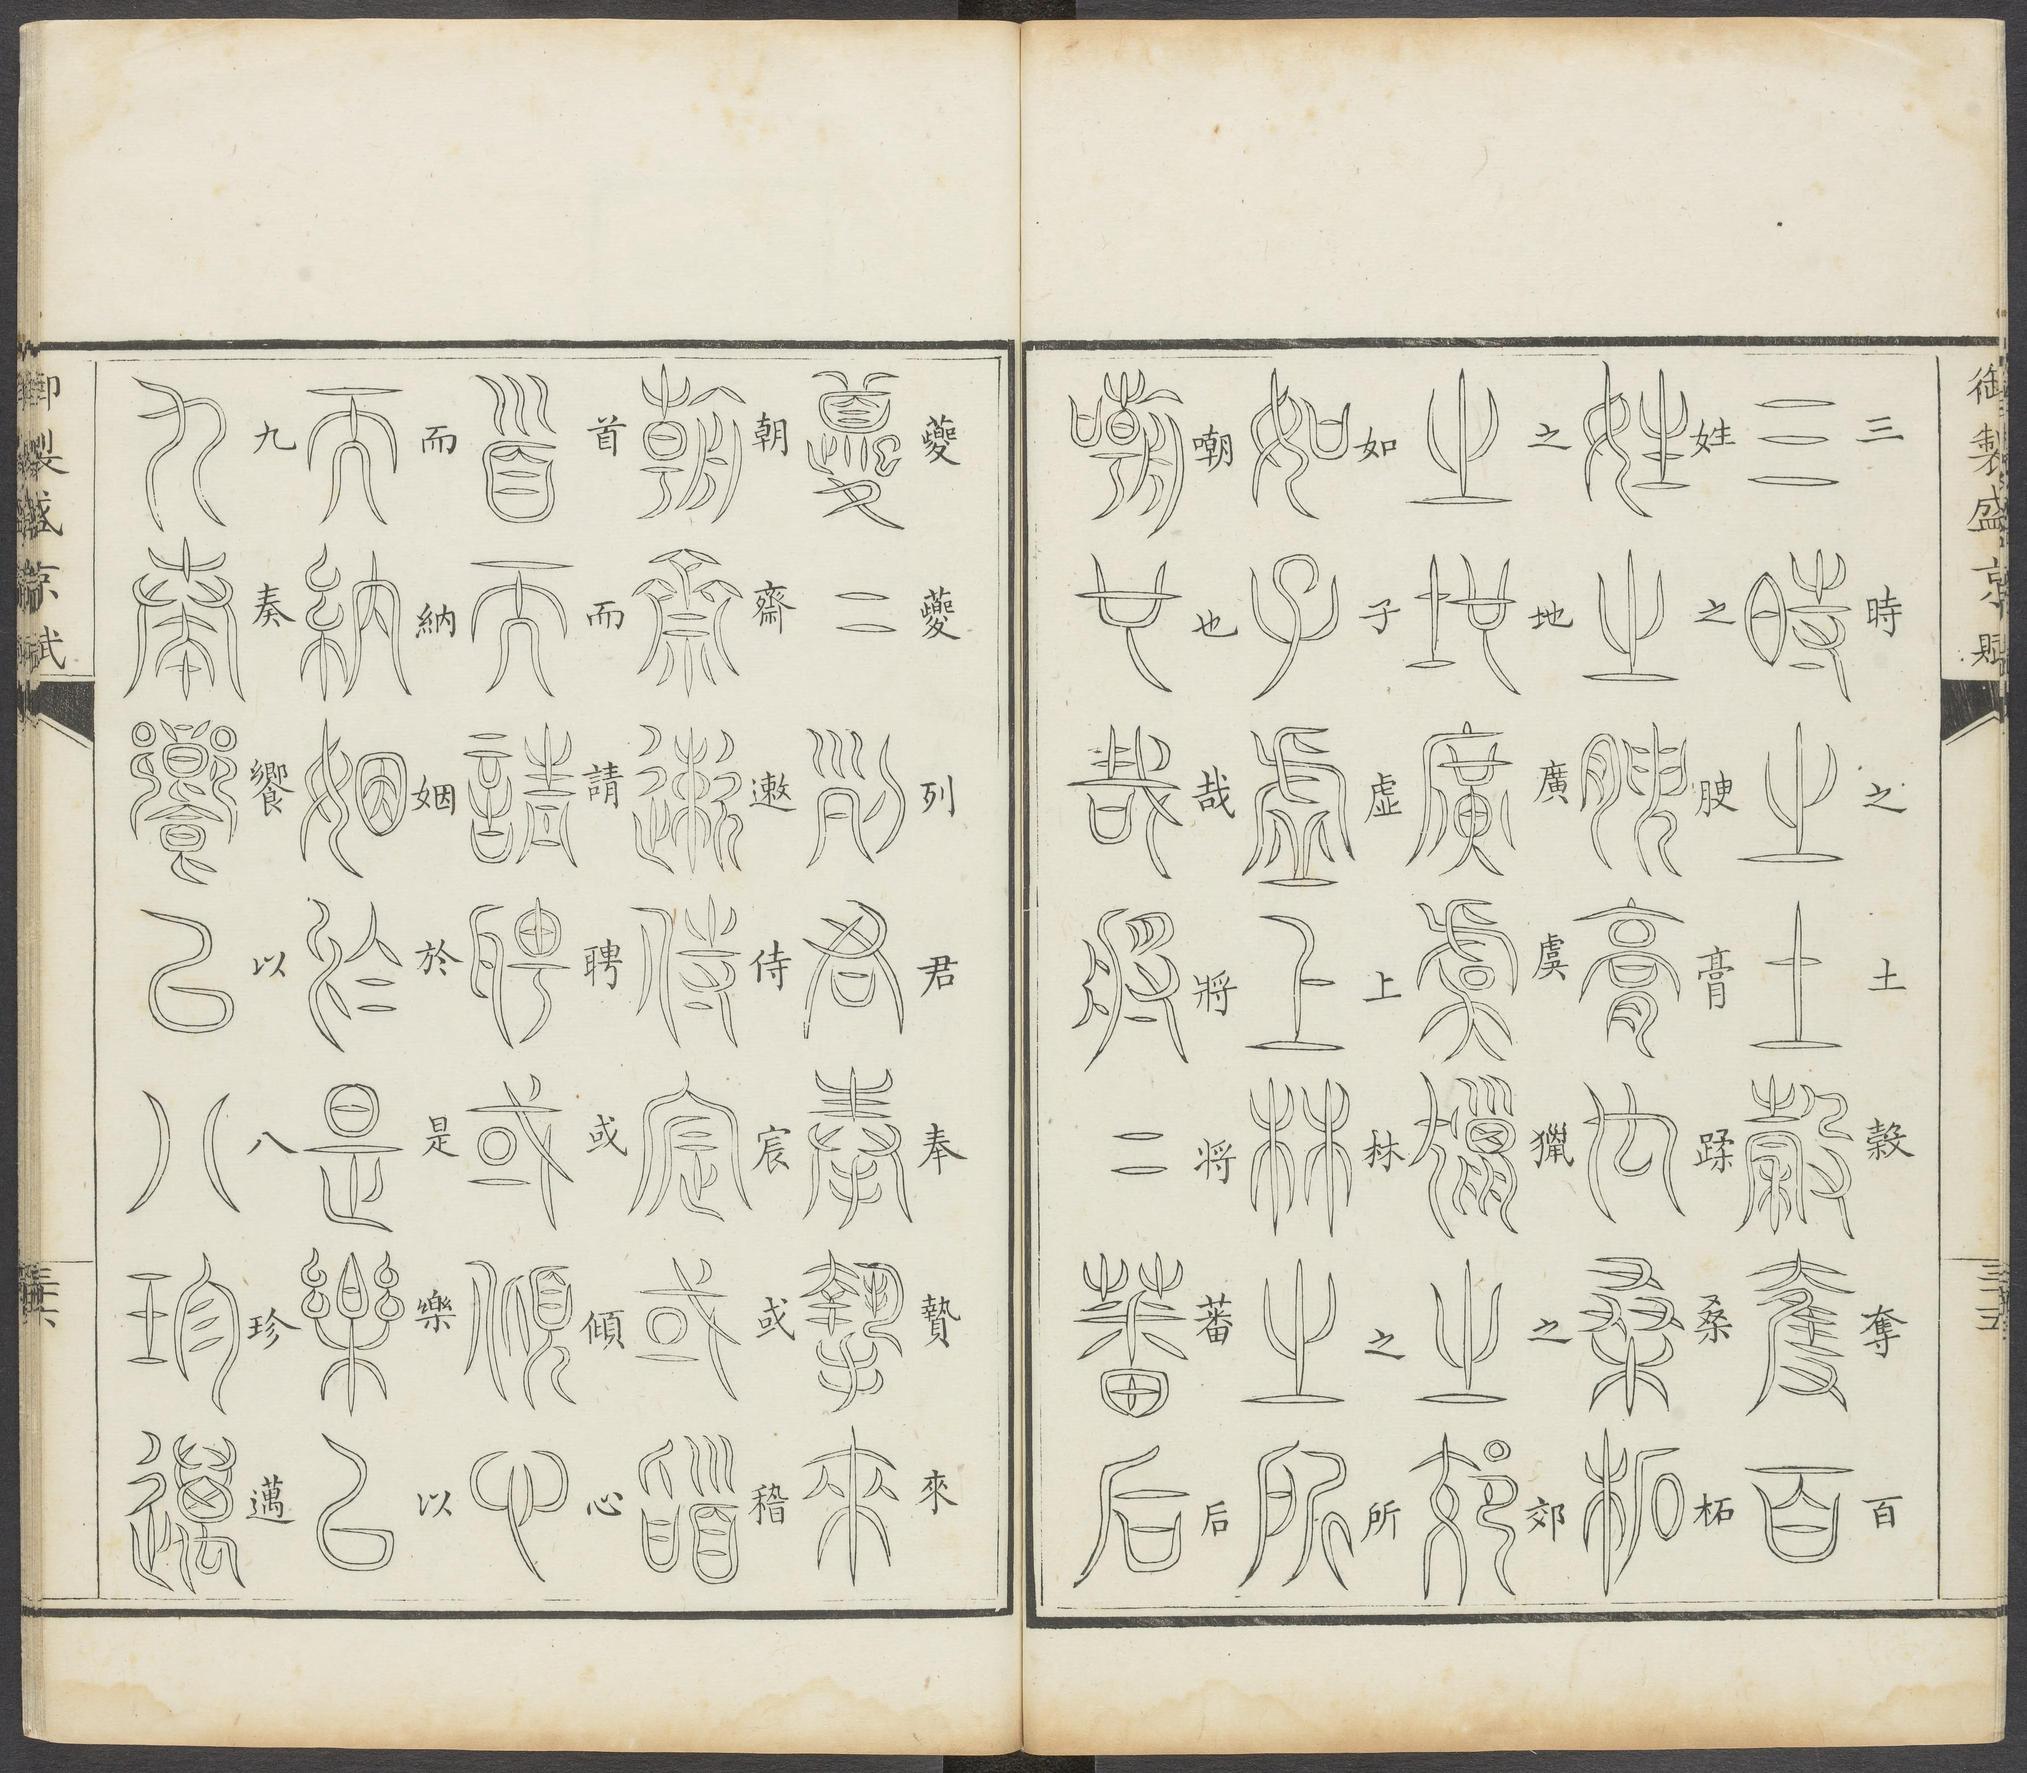 御製盛京賦 三五
三時之土穀奪百
姓之腴膏蹂桑柘
之地廣虞獵之郊
如子虛上林之所
嘲也哉將將蕃后
夔夔列君奉贄來
朝齋遫侍宸或稽
首而請聘或傾心
而納姻於是樂以
九奏饗以八珍邁
御製盛京賦 三六